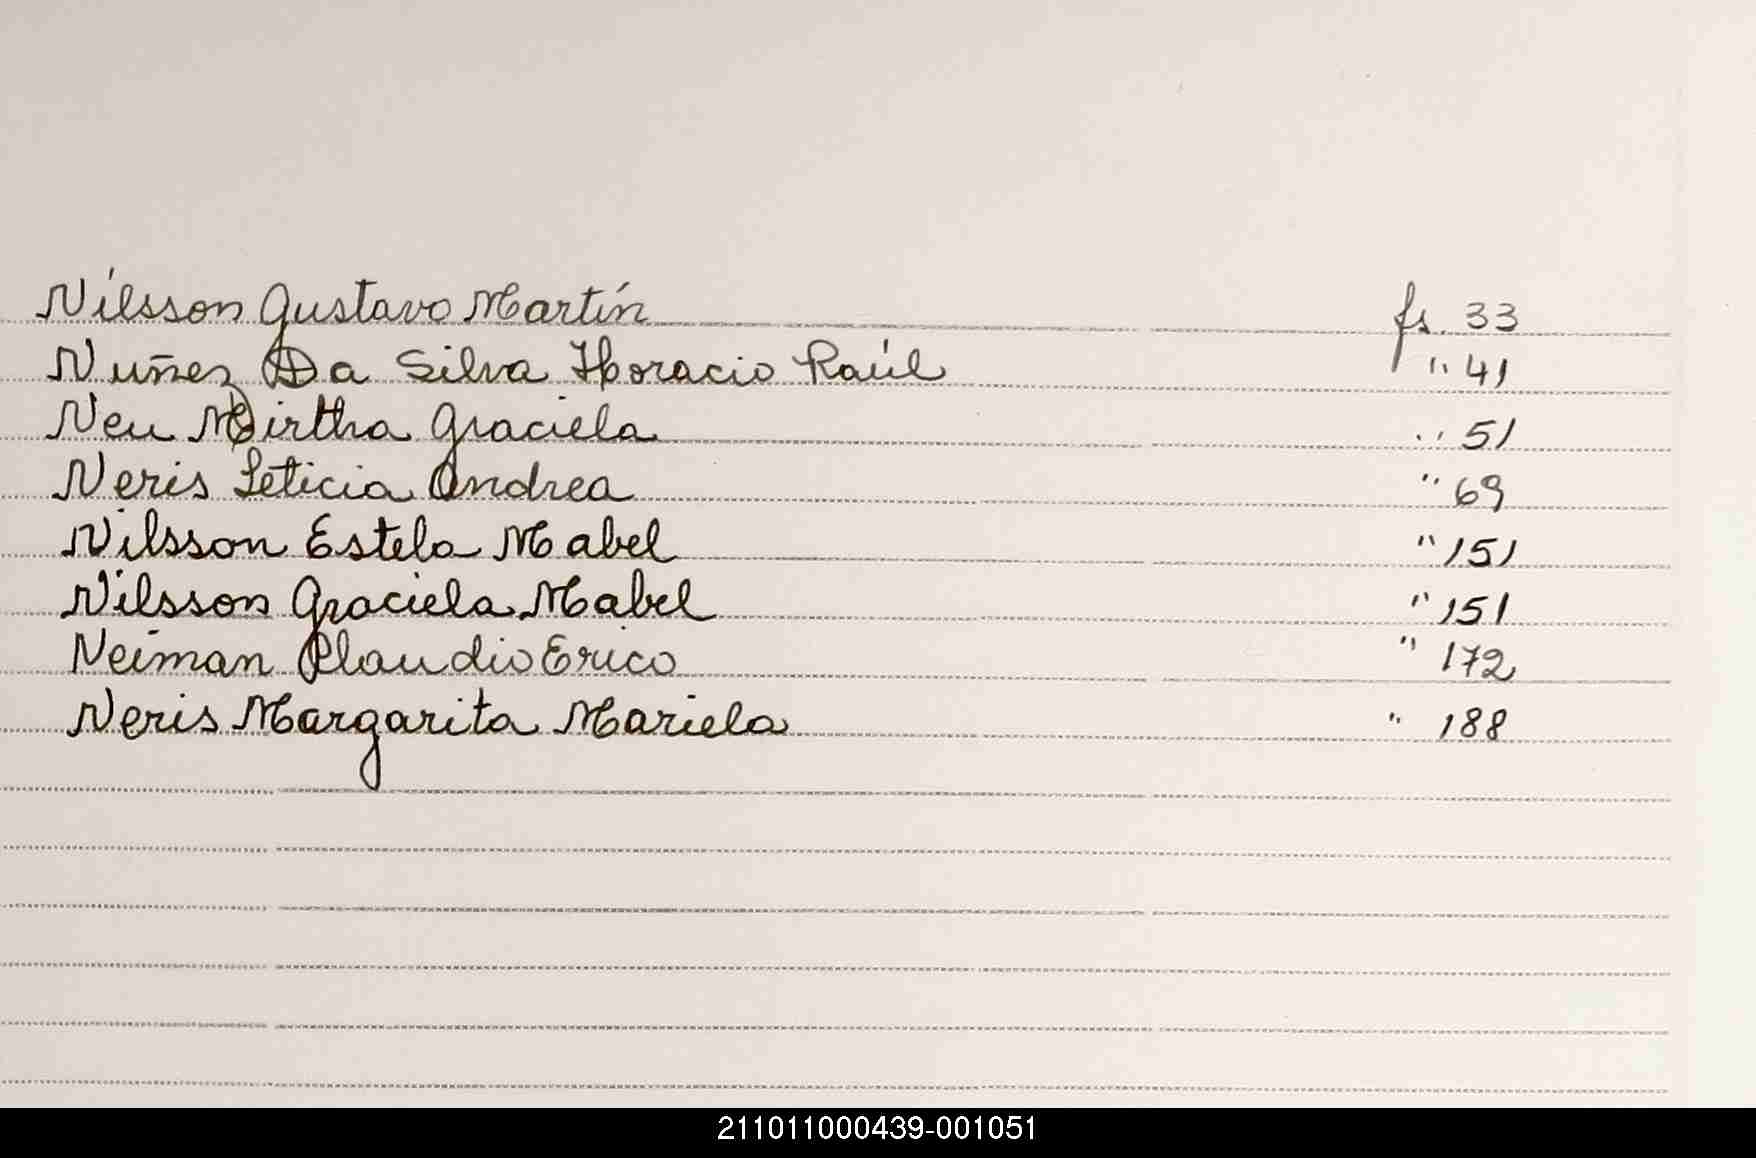 Nilsson Gustavo Martín fs. 33
Nuñez Da Silva Horacio Raúl " 41
Neu Mirtha Graciela " 51
Neris Leticia Andrea " 69
Nilsson Estela Mabel " 151
Nilsson Graciela Mabel " 151
Neiman Claudio Erico " 172
Neris Margarita Mariela " 188
211011000439-001051